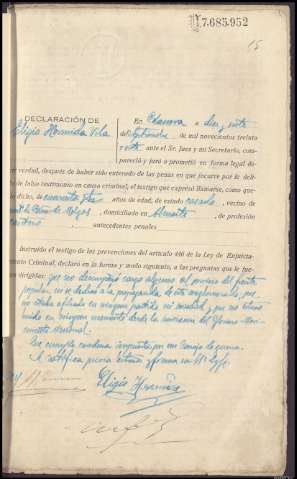 7.685.952
15
DECLARACIÓN DE
Eligio Hermida Vila
En Celanova a diez y siete
de Septiembre de mil novecientos treinta
y siete ante el Sr. Juez y mi Secretario, com-
pareció y juró o prometió en forma legal de-
cir verdad, después de haber sido enterado de las penas en que incurre por el deli-
to de falso testimonio en causa criminal, el testigo que expresó llamarse, como que-
da dicho, de cuarenta y años de edad, de estado casado, vecino
de domiciliado en de profesión
antecedentes penales
Instruído el testigo de las prevenciones del artículo 416 de la Ley de Enjuicia-
miento Criminal, declaró en la forma y modo siguiente, a las preguntas que le fue-
ron dirigidas: que no desempeñó cargo alguno al servicio del frente
popular, ni se dedicó a la propaganda de este conglomerado, que
no estaba afiliado en ningún partido ni sociedad, y que no
en ningún momento desde la iniciación del Glorioso Movi-
miento Nacional.
Que cumplió condena impuesta por un Consejo de guerra.
Se ratifica previa lectura y firma con Sª. Doy fe.
Eligio Hermida